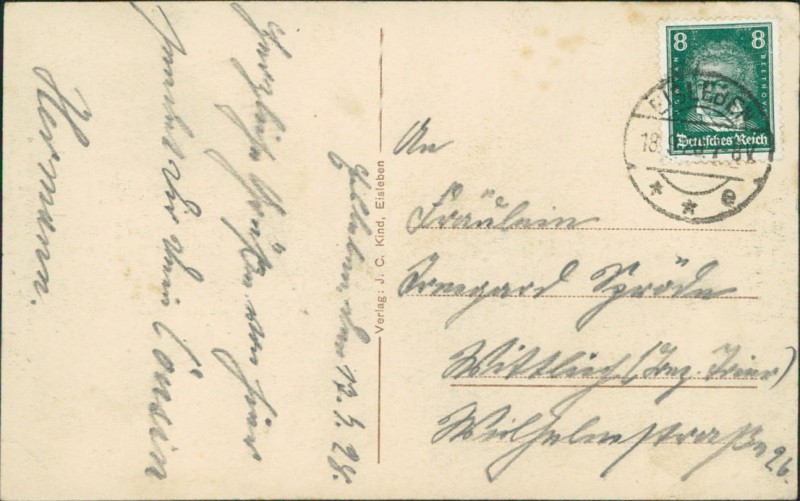 Eisleben den 17.5.28.
Herzliche Grüße von hier
sendet Dir dein Cousin
Hermann.
Verlag: J. C. Kind, Eisleben
8 8
LUDWIG VAN BEETHOVEN
Deutsches Reich
EISLEBEN
18
* * e
An
Fräulein
Irmgard Spröde
Wittlich (Bez. Trier)
Wilhelmstraße 26.